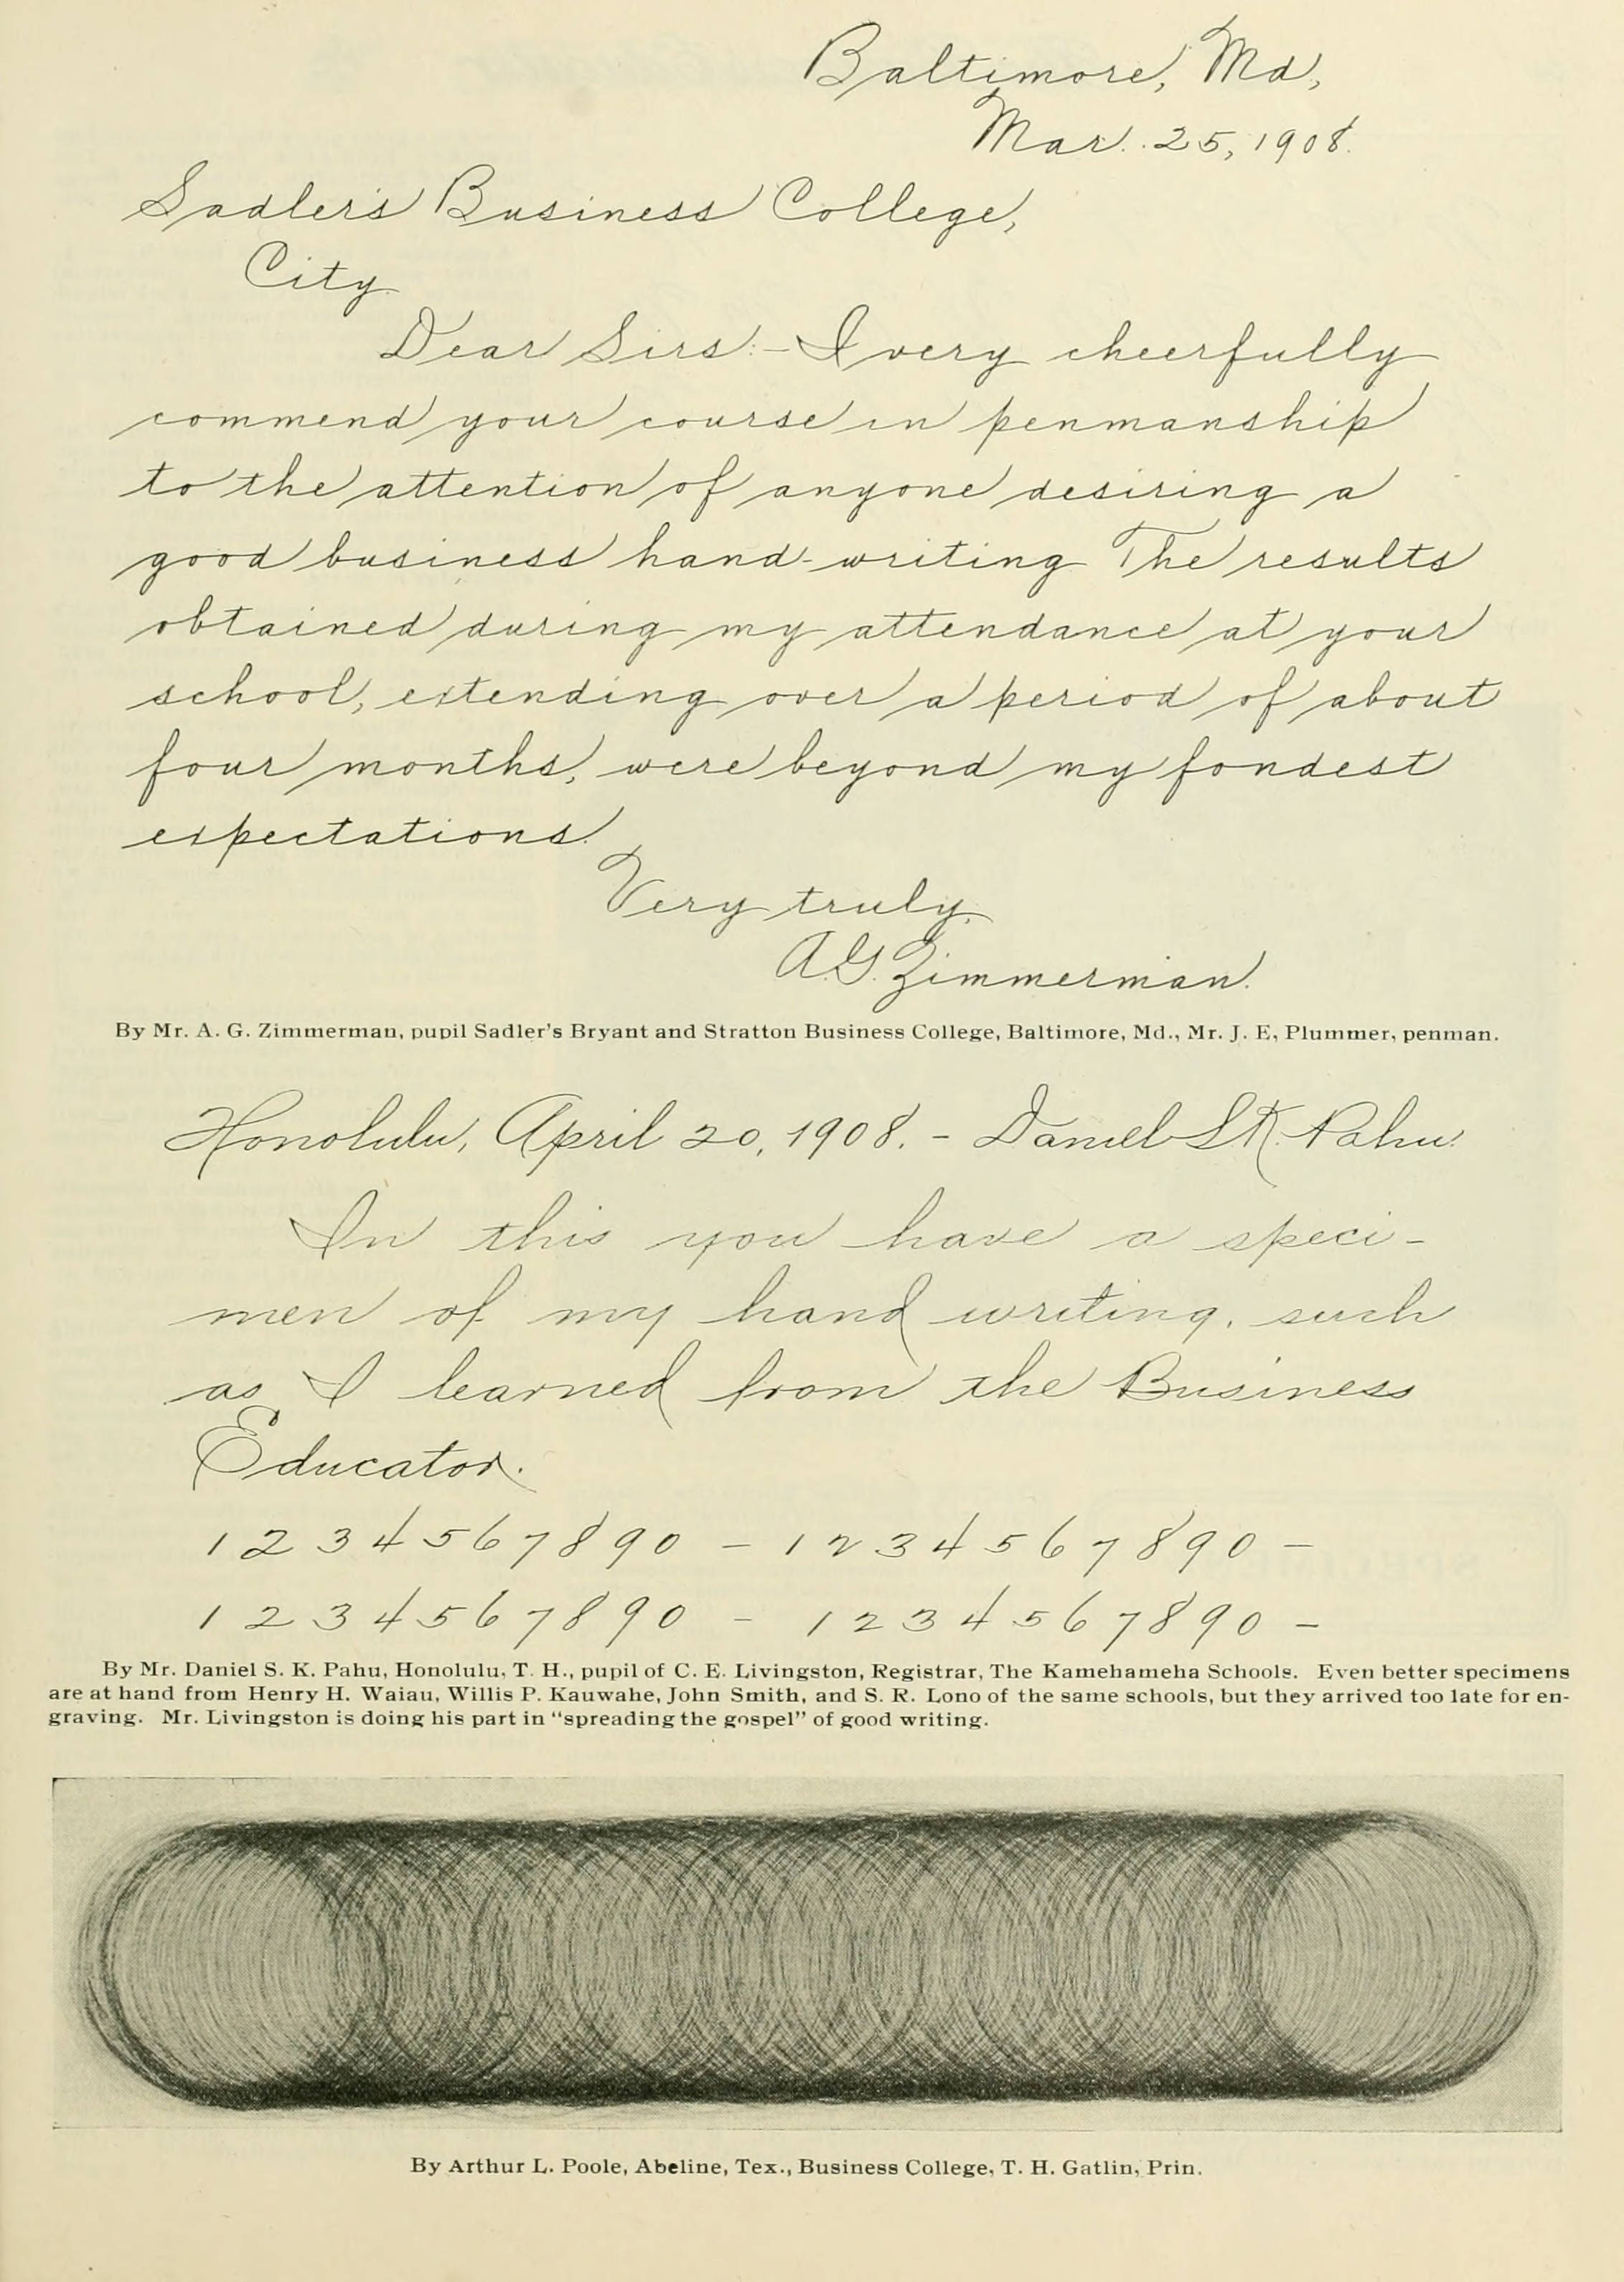 Baltimore, Md,
Mar. 25, 1908.
Sadler's Business College,
City
Dear Sirs:- I very cheerfully
commend your course in penmanship
to the attention of anyone desiring a
good business hand-writing The results
obtained during my attendance at your
school, extending over a period of about
four months, were beyond my fondest
expectations.
Very truly,
A.G. Zimmerman.
By Mr. A. G. Zimmerman, pupil Sadler's Bryant and Stratton Business College, Baltimore, Md., Mr. J. E, Plummer, penman.
Honolulu, April 20, 1908. - Daniel S.K. Pahu.
In this you have a speci-
men of my hand writing, such
as I learned from the Business
Educator.
1 2 3 4 5 6 7 8 9 0 - 1 2 3 4 5 6 7 8 9 0 -
1 2 3 4 5 6 7 8 9 0 - 1 2 3 4 5 6 7 8 9 0 -
By Mr. Daniel S. K. Pahu, Honolulu, T. H., pupil of C. E. Livingston, Registrar, The Kamehameha Schools. Even better specimens
are at hand from Henry H. Waiau, Willis P. Kauwahe, John Smith, and S. R. Lono of the same schools, but they arrived too late for en-
graving. Mr. Livingston is doing his part in "spreading the gospel" of good writing.
By Arthur L. Poole, Abeline, Tex., Business College, T. H. Gatlin, Prin.